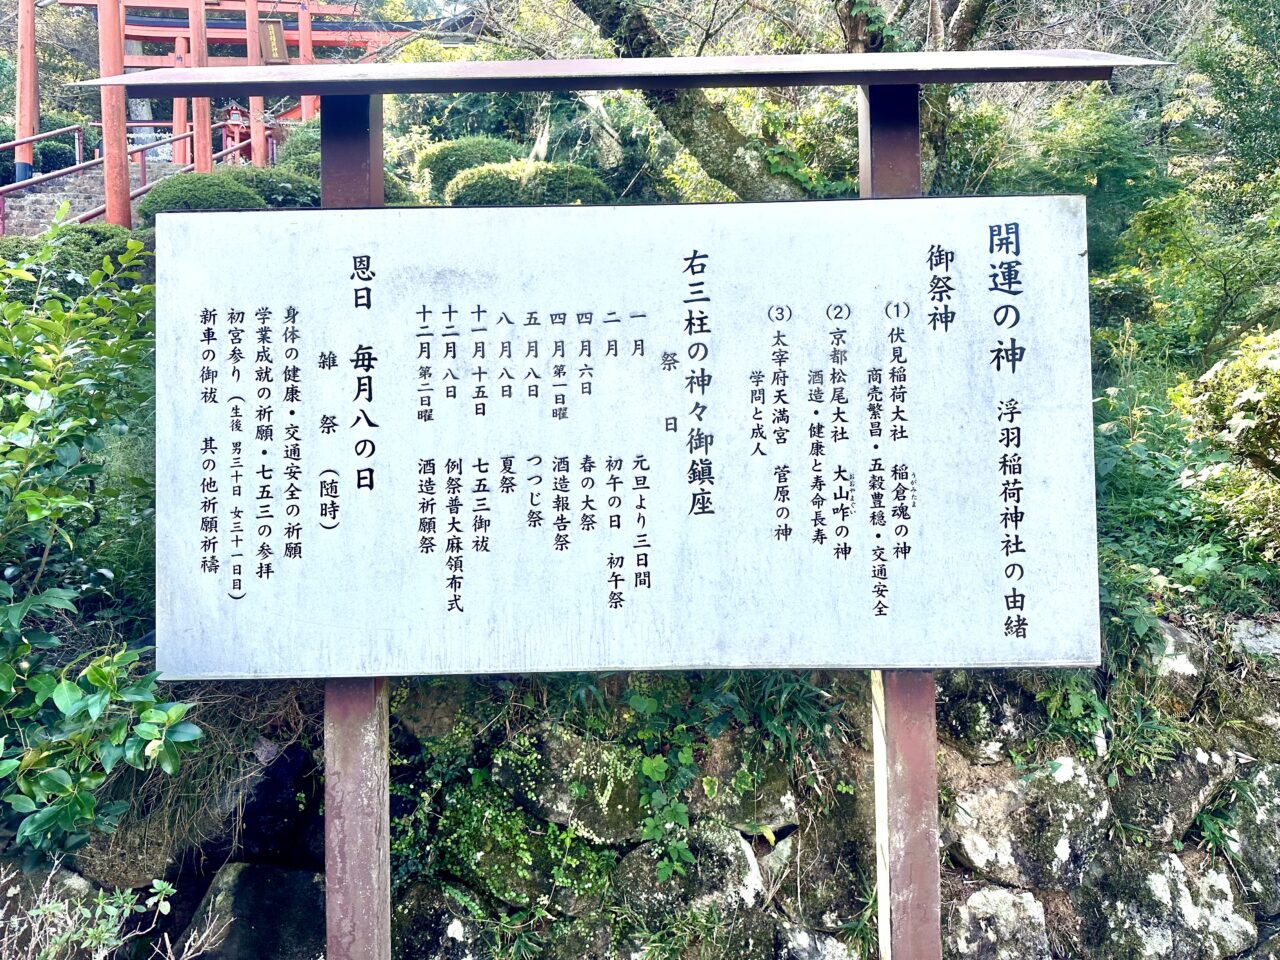 開運の神 浮羽稲荷神社の由緒
御祭神
(1) 伏見稲荷大社 稲倉魂の神
うがみたま
商売繁昌・五穀豊穏・交通安全
(2) 京都松尾大社 大山咋の神
おおやまぐい
酒造・健康と寿命長寿
(3) 太宰府天満宮 菅原の神
学問と成人
右三柱の神々御鎮座
祭日
一月 元旦より三日間
二月 初午の日 初午祭
四月六日 春の大祭
四月第一日曜 酒造報告祭
五月八日 つつじ祭
八月八日 夏祭
十一月十五日 七五三御祓
十二月八日 例祭普大麻領布式
十二月第二日曜 酒造祈願祭
恩日 毎月八の日
雑祭 (随時)
身体の健康・交通安全の祈願
学業成就の祈願・七五三の参拝
初宮参り (生後 男三十日 女三十一日目)
新車の御祓 其の他祈願祈禱